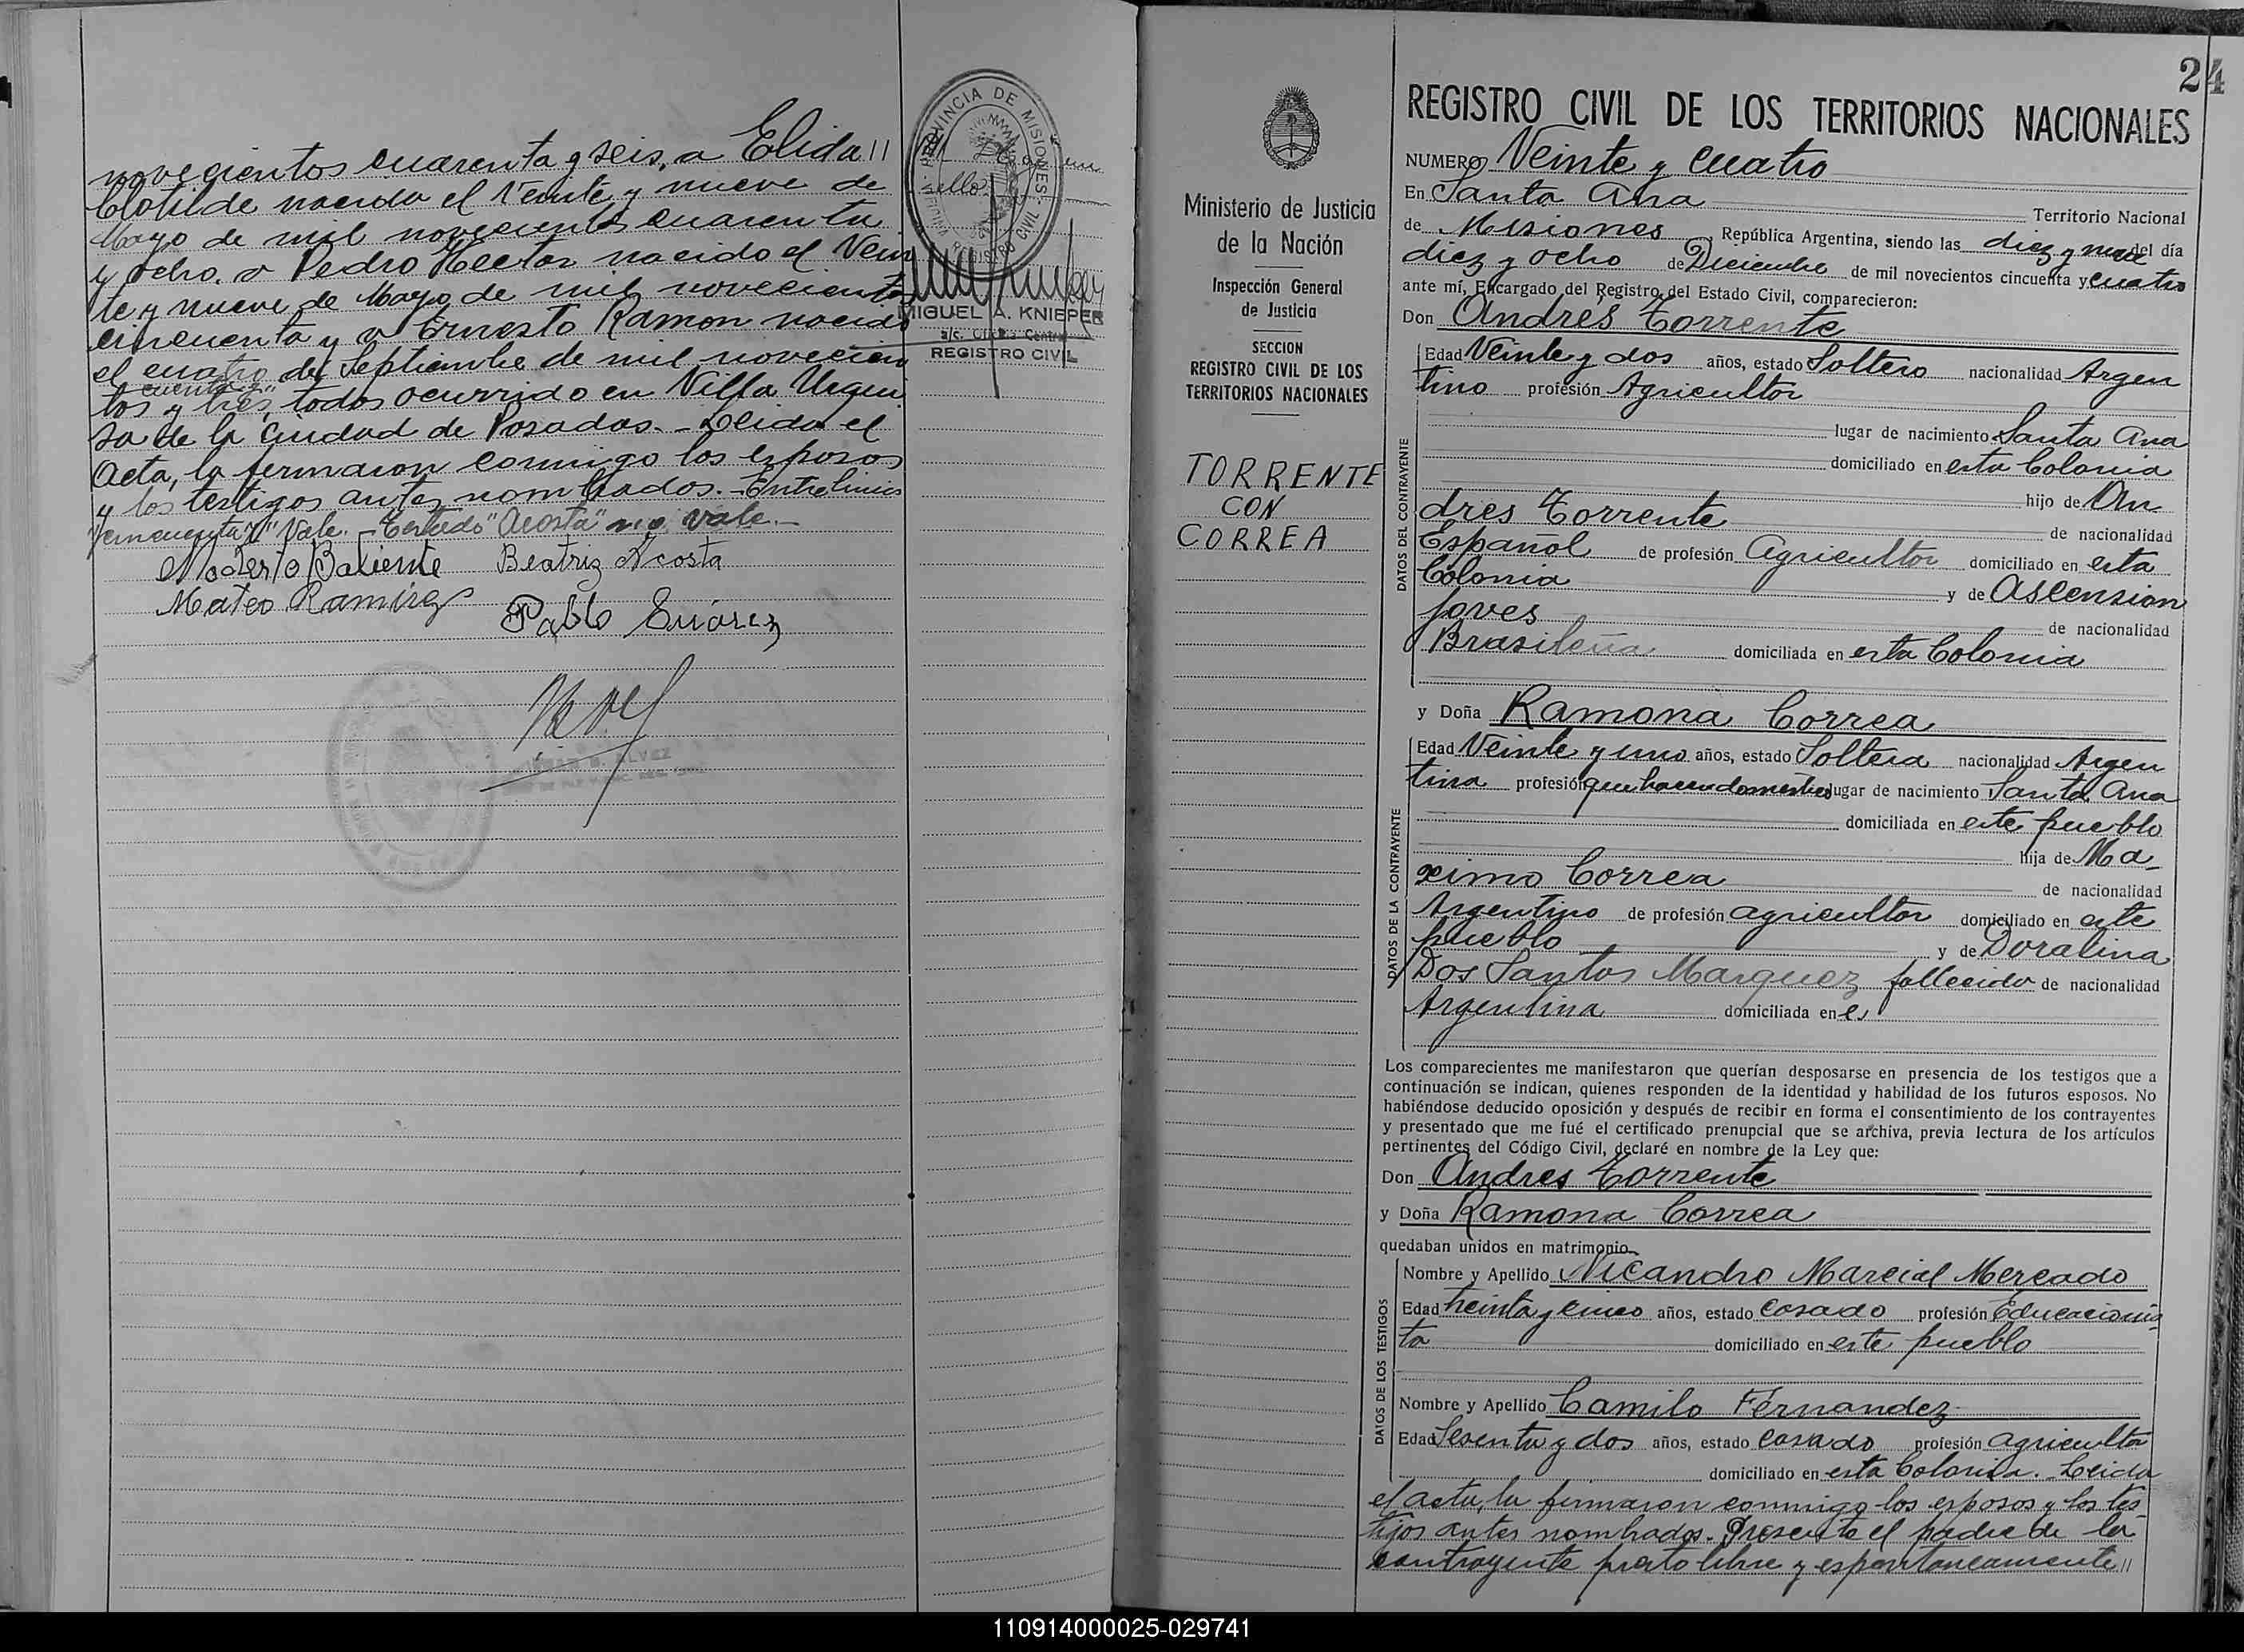 novecientos cuarenta y seis, a Elida //
Clotilde nacida el Veinte y nueve de
Mayo de mil novecientos cuarenta
y ocho, a Pedro Hector nacido el Vein
te y nueve de Mayo de mil novecientos
cincuenta y a Ernesto Ramon nacido
el cuatro de Septiembre de mil novecien
cuenta y
tos y tres, todos ocurrido en Villa Urqui
sa de la Ciudad de Posadas.- Leida el
Acta, la firmaron conmigo los esposos
y los testigos antes nombrados.- Entrelinias
"cincuenta y" Vale.- Testado "Acosta" no vale.-
Modesto Baliente Beatriz Acosta
Mateo Ramirez
Pablo Suárez
PROVINCIA DE MISIONES
REGISTRO CIVIL
sello
MIGUEL A. KNIEPER
a/c. Oficina Central
REGISTRO CIVIL
24
Ministerio de Justicia
de la Nación
Inspección General
de Justicia
SECCION
REGISTRO CIVIL DE LOS
TERRITORIOS NACIONALES
TORRENTE
CON
CORREA
REGISTRO CIVIL DE LOS TERRITORIOS NACIONALES
NUMERO Veinte y cuatro
En Santa Ana Territorio Nacional
de Misiones República Argentina, siendo las diez y nueve del día
diez y ocho de Diciembre de mil novecientos cincuenta y cuatro
ante mí, Encargado del Registro del Estado Civil, comparecieron:
Don Andres Torrente
DATOS DEL CONTRAYENTE
Edad Veinte y dos años, estado Soltero nacionalidad Argen
tino profesión Agricultor
lugar de nacimiento Santa Ana
domiciliado en esta Colonia
hijo de An
dres Torrente de nacionalidad
Español de profesión Agricultor domiciliado en esta
Colonia y de Ascension
Joves de nacionalidad
Brasileña domiciliada en esta Colonia
y Doña Ramona Correa
DATOS DE LA CONTRAYENTE
Edad Veinte y uno años, estado Soltera nacionalidad Argen
tina profesión quehacer domestico lugar de nacimiento Santa Ana
domiciliada en este pueblo
hija de Ma
ximo Correa de nacionalidad
Argentino de profesión agricultor domiciliado en este
pueblo y de Doralina
Dos Santos Marquez fallecida de nacionalidad
Argentina domiciliada en
Los comparecientes me manifestaron que querían desposarse en presencia de los testigos que a
continuación se indican, quienes responden de la identidad y habilidad de los futuros esposos. No
habiéndose deducido oposición y después de recibir en forma el consentimiento de los contrayentes
y presentado que me fué el certificado prenupcial que se archiva, previa lectura de los artículos
pertinentes del Código Civil, declaré en nombre de la Ley que:
Don Andres Torrente
y Doña Ramona Correa
quedaban unidos en matrimonio
DATOS DE LOS TESTIGOS
Nombre y Apellido Nicandro Marcial Mercado
Edad treinta y cinco años, estado casado profesión Educacionis
ta domiciliado en este pueblo
Nombre y Apellido Camilo Fernandez
Edad Sesenta y dos años, estado casado profesión agricultor
domiciliado en esta Colonia.- Leida
el acta, la firmaron conmigo los esposos y los tes
tigos antes nombrados. Presente el padre de la
contrayente prestó libre y espontaneamente //
110914000025-029741